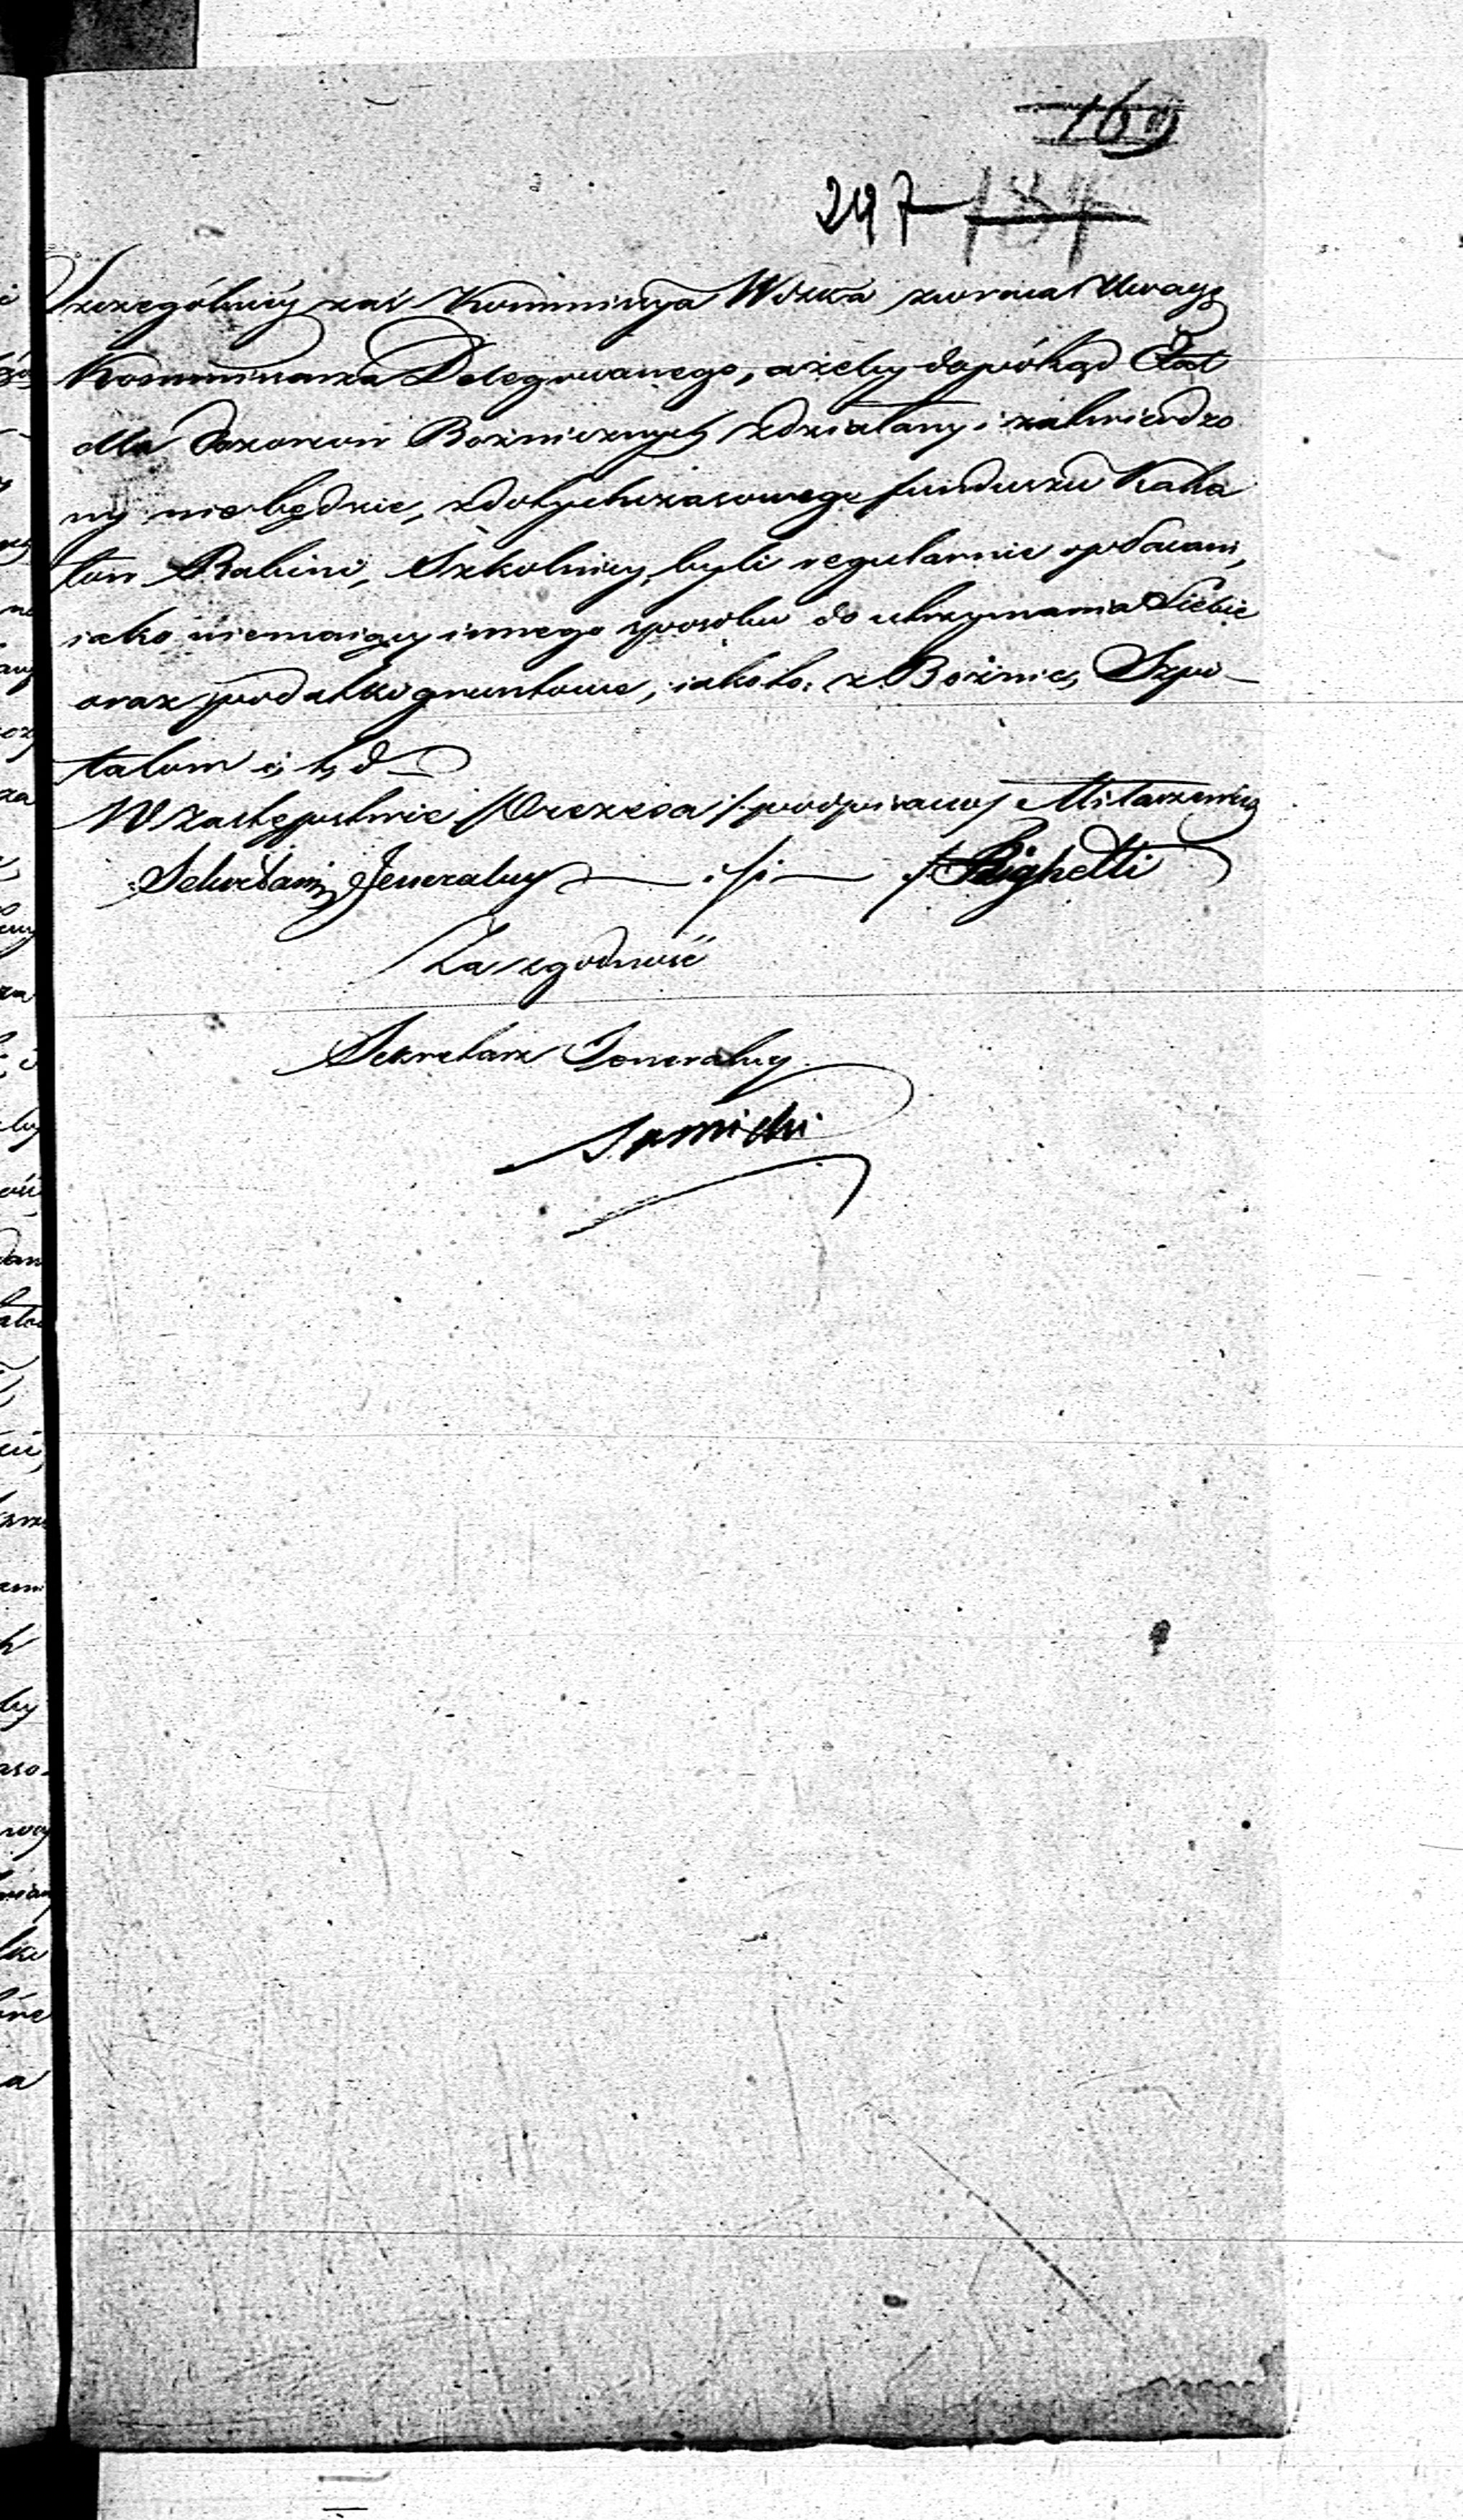 169
247 137
Szczególniey zaś Kommissya Wdzka zwraca Uwagę
Kommissarza Delegowanego, ażeby dopókąd Etat
dla Dozorów Bożnicznych zdziałany i zatwierdzo
ny nie będzie, z dotychczasowego funduszu Kaha
łow Rabini, Szkolnicy, byli regularnie opłacani,
iako niemaiący innego sposobu do utrzymania Siebie
oraz podatki gruntowe, iako to: z Bożnic, Szpi-
talow i, t, d
W Zastępstwie Prezesa /:podpisany/ Milaszewicz
Sekretarz Jeneralny /:/ Righetti
Za zgodność
Sekretarz Jeneralny